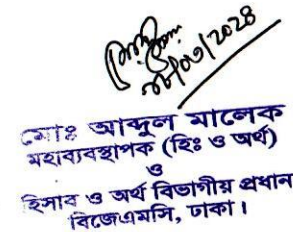 ২৮/০৩/২০২৪
মোঃ আব্দুল মালেক
মহাব্যবস্থাপক (হিঃ ও অর্থ)
ও
হিসাব ও অর্থ বিভাগীয় প্রধান
বিজেএমসি, ঢাকা।